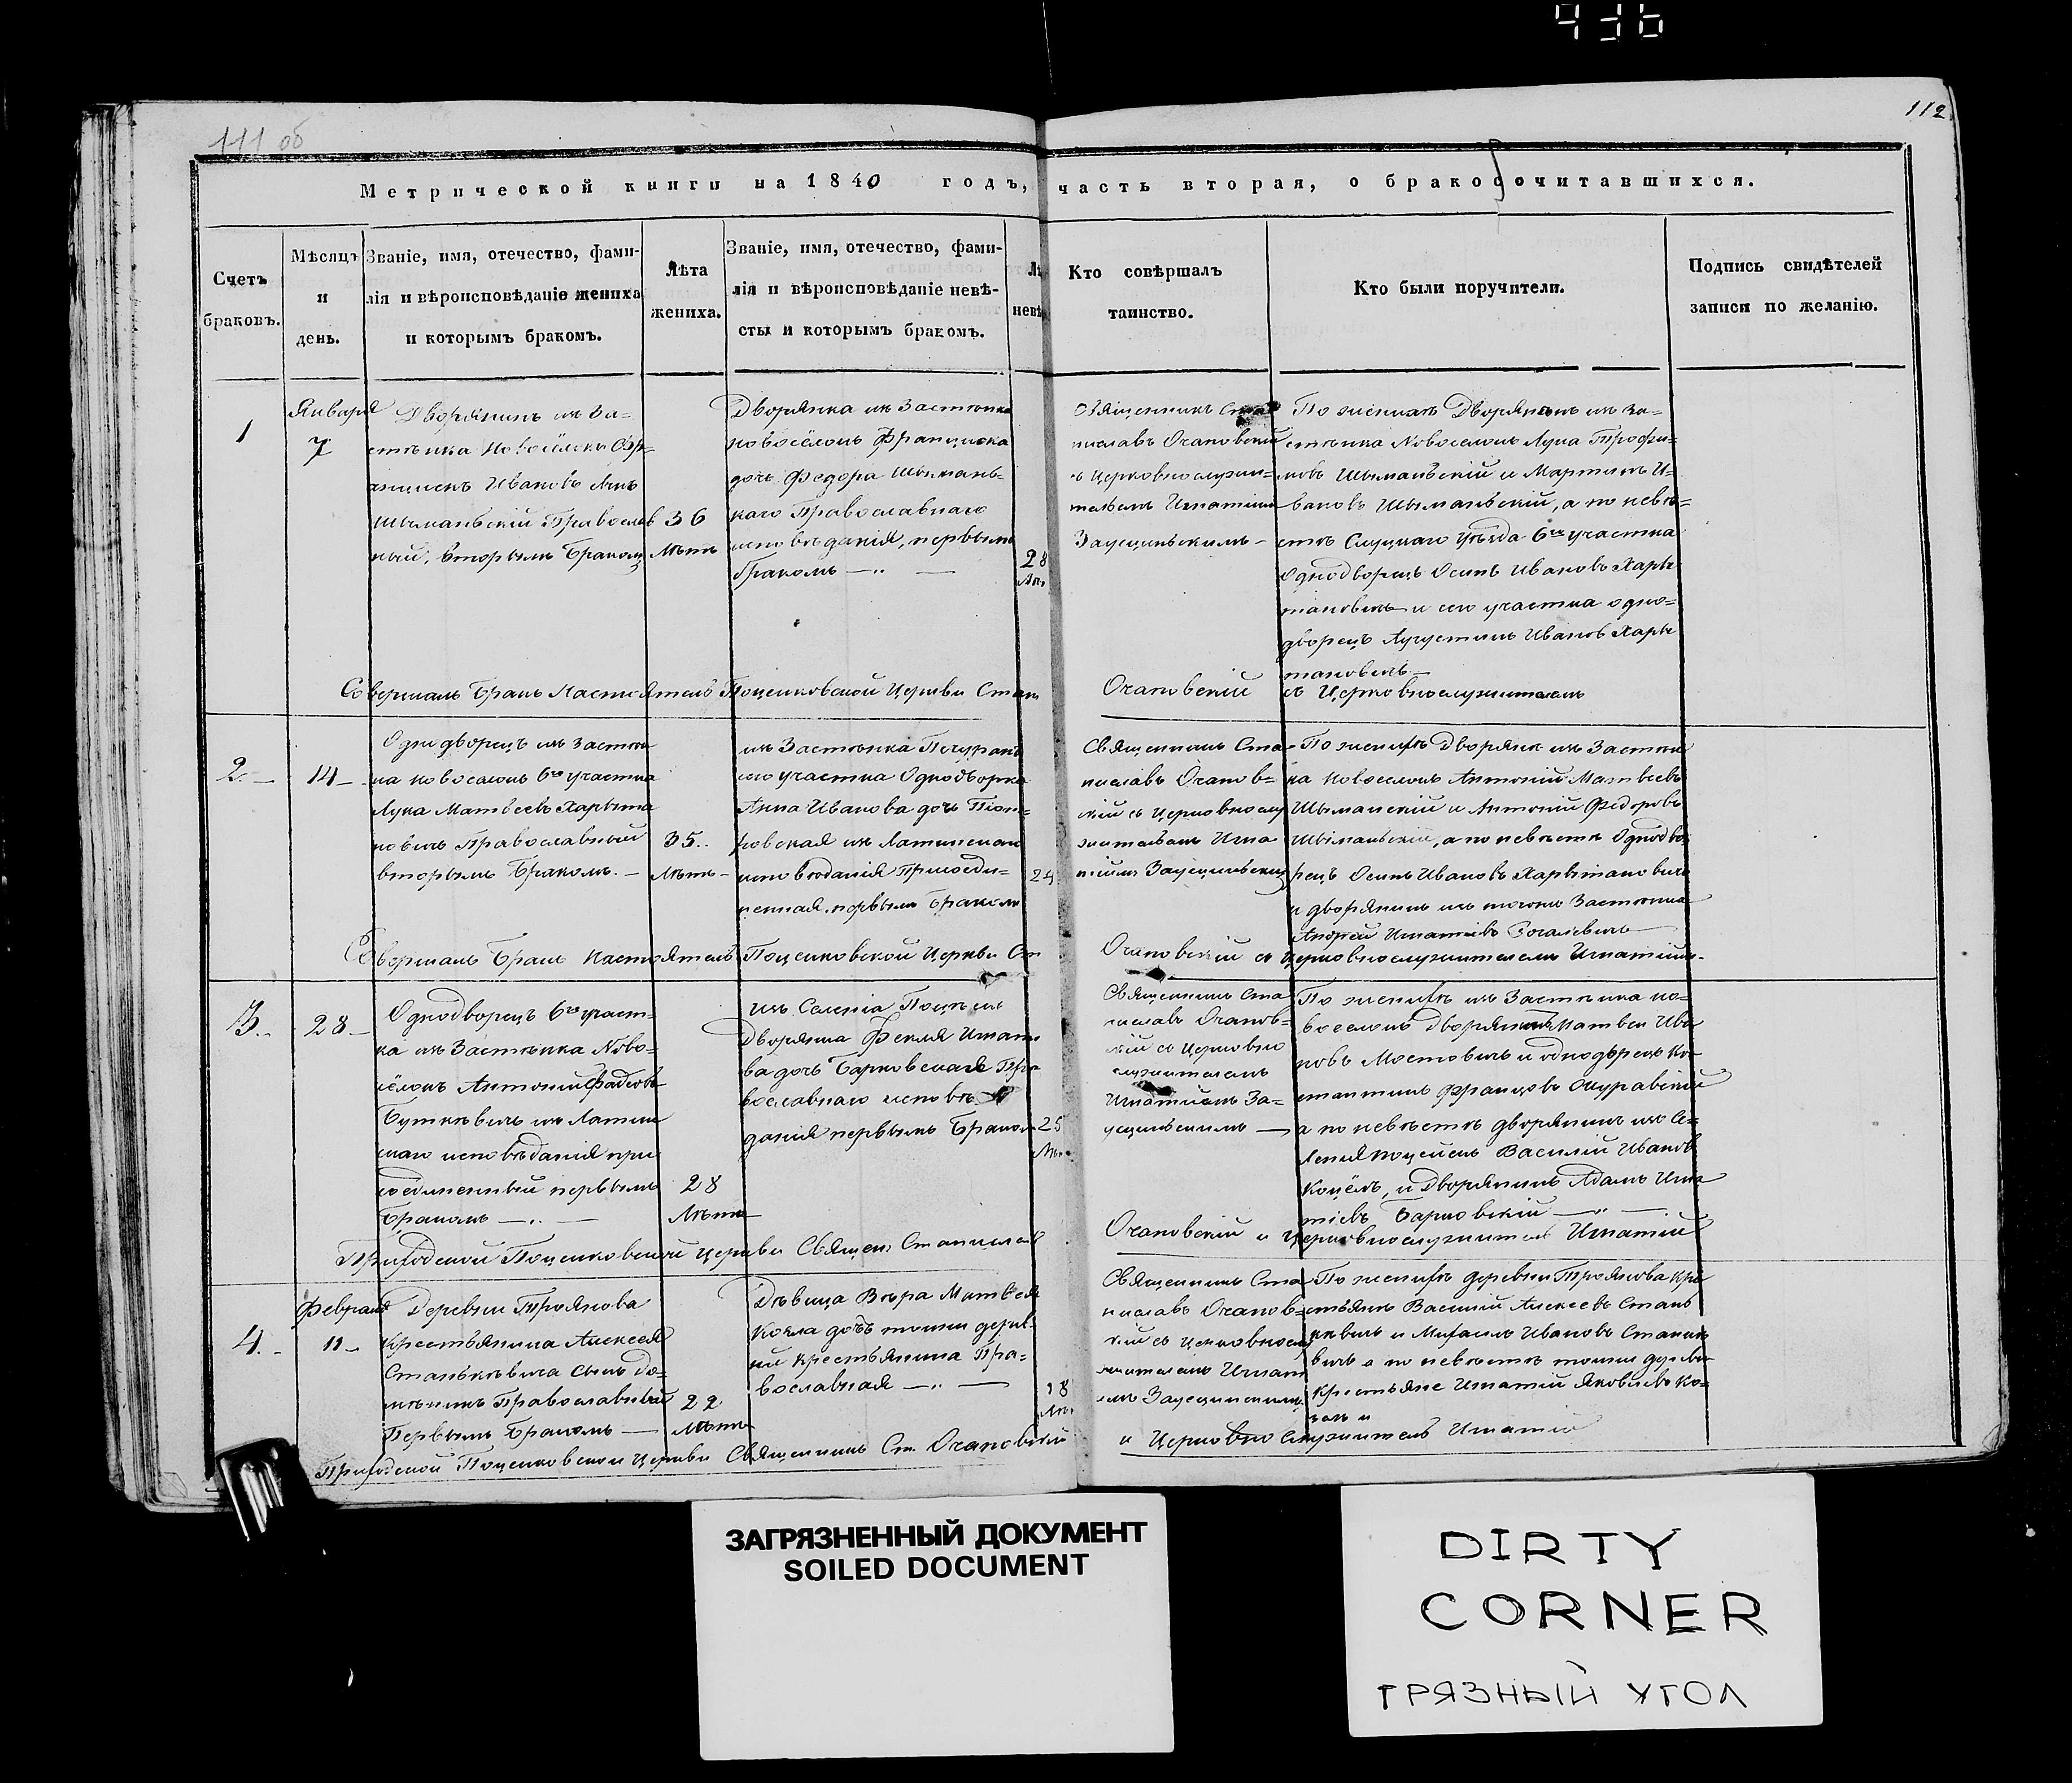 436
111 об
112
Метрической книги на 1840 годъ, часть вторая, о бракосочитавшихся.
Счетъ
браковъ.
Мѣсяцъ
и
день.
Званіе, имя, отечество, фами-
лія и вѣроисповѣданіе жениха
и которымъ бракомъ.
Лѣта
жениха.
Званіе, имя, отечество, фами-
лія и вѣроисповѣданіе невѣ-
сты и которымъ бракомъ.
Лѣ
невѣ
Кто совѣршалъ
таинство.
Кто были поручители.
Подпись свидѣтелей
записи по желанію.
1
Января
7
Дворянинъ изъ За-
стѣнка Новосёлокъ Фр-
анцискъ Ивановъ сынъ
Шыманьскій Православ
ный, вторымъ бракомъ
36
Лѣтъ
Дворянка изъ Застѣнка
новосёлокъ Франциска
дочь Федора Шымань-
каго Православнаго
исповѣданія, первымъ
бракомъ
28
Лѣт
Священникъ Ста
ниславъ Очановскій
съ Церковнослужи-
телемъ Игнатіемъ
По женихѣ Дворянинъ изъ За-
стѣнка Новоселокъ Лука Трофи-
мовъ Шыманьскій и Мартинъ И-
вановъ Шыманьскій, а по невѣ-
стѣ Слуцкаго уѣзда 6го участка
Однодворецъ Осипъ Ивановъ Хары
тановичъ и сего участка одно-
дворецъ Аугустинъ Ивановъ Хары
тановичъ
Совершалъ бракъ Настоятель Поцейковской Церкви Стан
Очановскій съ Церковнослужителемъ
2.
14
Однодворецъ изъ Застѣн
ка новоселокъ 6го участка
Лука Матвеевъ Харыта
новичъ Православный
вторымъ бракомъ.
35..
Лѣтъ
изъ Застѣнка
сего участка Однодворка
Анна Иванова дочь
изъ Латинскаго
исповѣданія присоеди-
ненная, первымъ бракомъ
24
Священникъ Ста
ниславъ Очанов-
скій съ Церковнослу
жителемъ Игна
По женихѣ Дворяне изъ Застѣн
ка Новоселокъ Антоній Матвеевъ
Шыманскій и Антоній Федоровъ
Шыманьскій, а по невѣстѣ Однодво
рецъ Осипъ Ивановъ Харытановичъ
и дворянинъ изъ тогожъ Застѣнка
Андрей Игнатіевъ
Совершалъ бракъ Настоятель Поцейковской Церкви Ст
Очановскій съ церковнослужителемъ Игнатіем
3.
28
Однодворецъ 6го участ-
ка изъ Застѣнка Ново-
сёлокъ Антоній
Буткѣвичъ изъ Латин
скаго исповѣданія при
соединенный первымъ
бракомъ
28
Лѣтъ
изъ Селенія
Дворянка Фекля Игнать
ва дочь Барковская Пра
вославнаго исповѣ
данія первымъ бракомъ
25
Лѣт
Священникъ Ста
ниславъ Очанов-
скій съ Церковно
служителемъ
Игнатіемъ За-
По женихѣ изъ Застѣнка но-
воселокъ Дворянинъ Матвей Ива
новъ Мостовичъ и однодворецъ Ко-
стантинъ Францовъ
а по невѣстѣ дворянинъ изъ Се-
ленія Василій Ивановъ
и Дворянинъ Адамъ Игна
тіевъ Барковскій
Приходской Поцейковской церкви Священ Станислав
Очановскій и Церковнослужитель Игнатій
4.
Февраля
11
Деревни Троянова
Крестьянина Алексея
Станькѣвича сынъ До-
Православный
Первымъ бракомъ
22
Лѣта
Дѣвица Вѣра Матвея
дочь тойже дерев-
ни крестьянина Пра-
вославная
18
Лѣт
Священникъ Ста
ниславъ Очанов-
скій съ Церковнослу
жителемъ Игнат
По женихѣ деревни Троянова Кре
стьяне Василій Алексеевъ Стань
кѣвичъ и Михаилъ Ивановъ Станкѣ
вичъ а по невѣстѣ тойже деревни
крестьяне Игнатій Яковлевъ Ко-
Приходской Поцейковской Церкви Священникъ Ст. Очановскій
и Церковно Служитель Игнатій
ЗАГРЯЗНЕННЫЙ ДОКУМЕНТ
SOILED DOCUMENT
DIRTY
CORNER
ГРЯЗНЫЙ УГОЛ